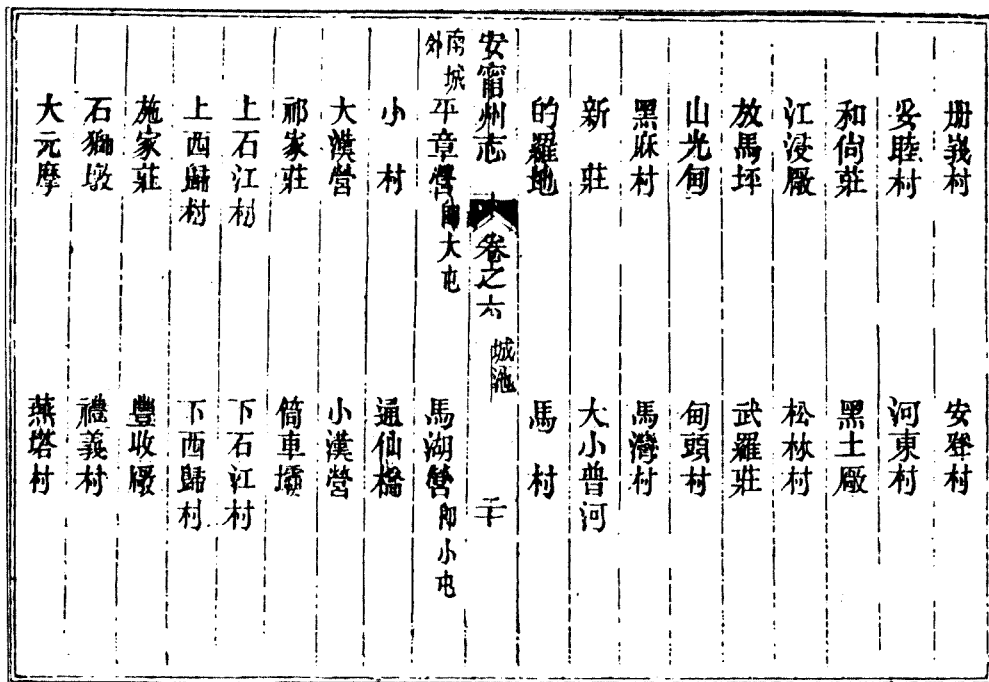 毋義村　安登村
妥睦村　河東村
和尙莊　黑土厰
江浸厰　松林村
放馬坪　武羅莊
山光甸　甸頭村
黑蔴村　馬灣村
新莊　大小普河
的羅地　馬村
安甯州志　卷之六　城池　二十
南城外　平章營 卽大屯　馬湖營 卽小屯
小村　通仙橋
大漢營　小漢營
祁家莊　筒車壩
上石江村　下石江村
上西歸村　下西歸村
施家莊　豐收厰
石獅墩　禮義村
大元摩　燕塔村